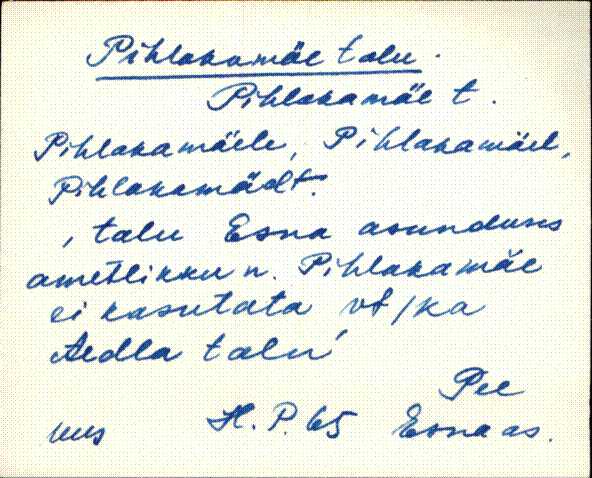 Pihlakamäe talu.
Pihlakamäe t.
Pihlakamäele, Pihlakamäel,
Pihlakamäelt.
, talu Esna asunduses
ametlikku n. Pihlakamäe
ei kasutata vt/ka
Aedla talu'
Pee
uus H. P. 65 Esna as.